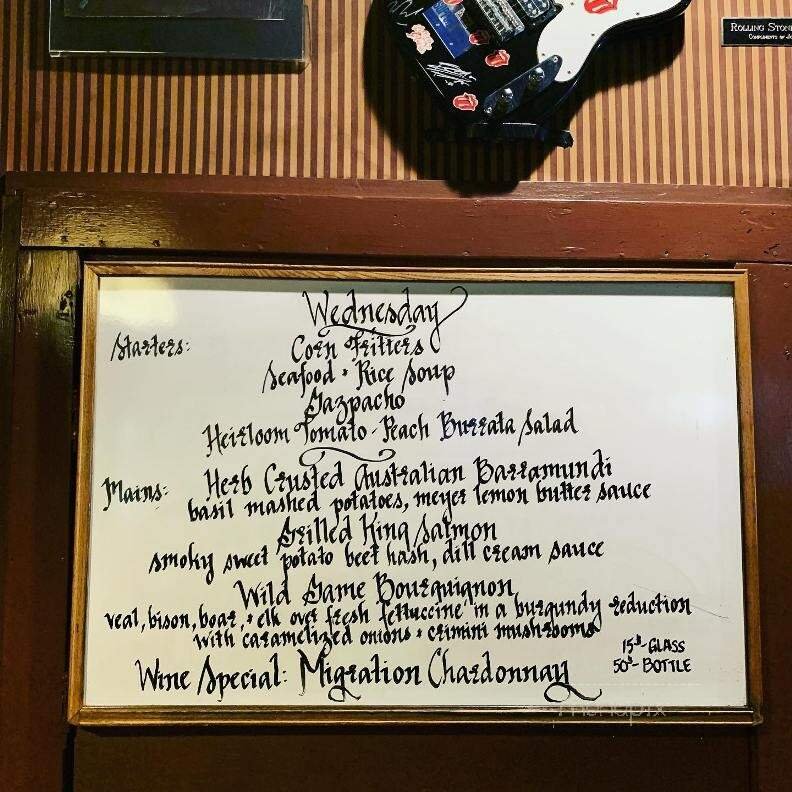 Rolling Stone
Wednesday
Starters:
Corn Fritters
Seafood & Rice Soup
Gazpacho
Heirloom Tomato-Peach Burrata Salad
Mains:
Herb Crusted Australian Barramundi
basil mashed potatoes, meyer lemon butter sauce
Grilled King Salmon
smoky sweet potato beet hash, dill cream sauce
Wild Game Bourguignon
veal, bison, boar, & elk over fresh fettuccine in a burgundy reduction
with caramelized onions & crimini mushrooms
Wine Special: Migration Chardonnay
15- GLASS
50- BOTTLE
menupix